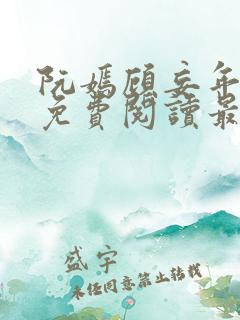 阮嫣顾妄年
免費閱讀最
盛宇
未经同意禁止转载